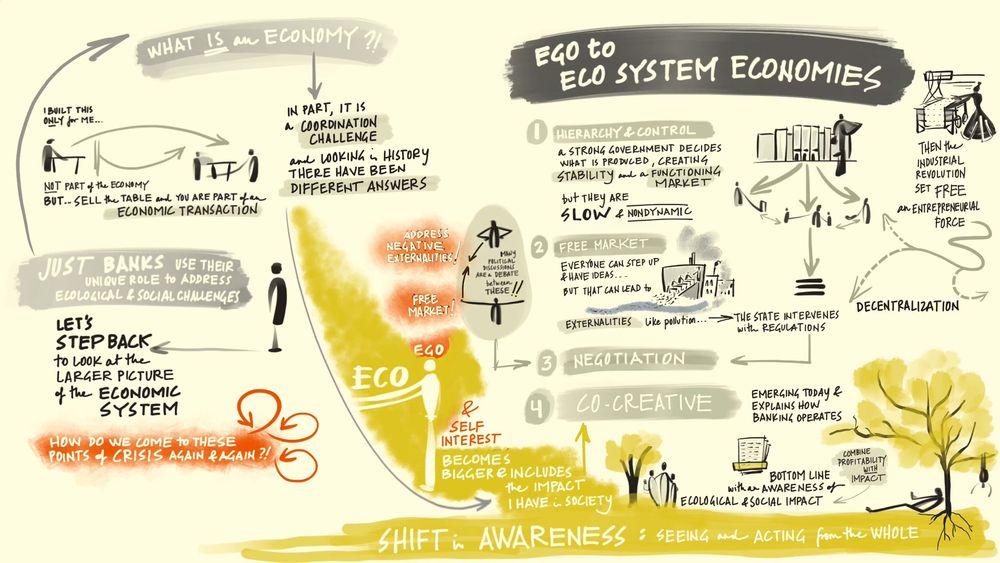 WHAT IS an ECONOMY?!
I BUILT THIS
ONLY for ME...
NOT PART of the ECONOMY
BUT... SELL the TABLE and YOU ARE PART of an
ECONOMIC TRANSACTION
IN PART, IT IS
a COORDINATION
CHALLENGE
and LOOKING in HISTORY
THERE HAVE BEEN
DIFFERENT ANSWERS
JUST BANKS USE THEIR
UNIQUE ROLE to ADDRESS
ECOLOGICAL & SOCIAL CHALLENGES
LET'S
STEP BACK
to LOOK at the
LARGER PICTURE
of the ECONOMIC
SYSTEM
HOW DO WE COME to THESE
POINTS of CRISIS AGAIN & AGAIN?!
ADDRESS
NEGATIVE
EXTERNALITIES!
FREE
MARKET!
MANY
POLITICAL
DISCUSSIONS
ARE a DEBATE
between
THESE!!
EGO
ECO
& SELF
INTEREST
BECOMES
BIGGER & INCLUDES
the IMPACT
I HAVE in SOCIETY
EGO to
ECO SYSTEM ECONOMIES
1 HIERARCHY & CONTROL
a STRONG GOVERNMENT DECIDES
WHAT IS PRODUCED, CREATING
STABILITY and a FUNCTIONING
MARKET
but THEY ARE
SLOW & NONDYNAMIC
THEN the
INDUSTRIAL
REVOLUTION
SET FREE
an ENTREPRENEURIAL
FORCE
2 FREE MARKET
EVERYONE CAN STEP UP
& HAVE IDEAS...
BUT THAT CAN LEAD to
EXTERNALITIES like pollution...
THE STATE INTERVENES
with REGULATIONS
DECENTRALIZATION
3 NEGOTIATION
4 CO-CREATIVE
EMERGING TODAY &
EXPLAINS HOW
BANKING OPERATES
BOTTOM LINE
with an AWARENESS of
ECOLOGICAL & SOCIAL IMPACT
COMBINE
PROFITABILITY
WITH
IMPACT
SHIFT in AWARENESS : SEEING and ACTING from the WHOLE